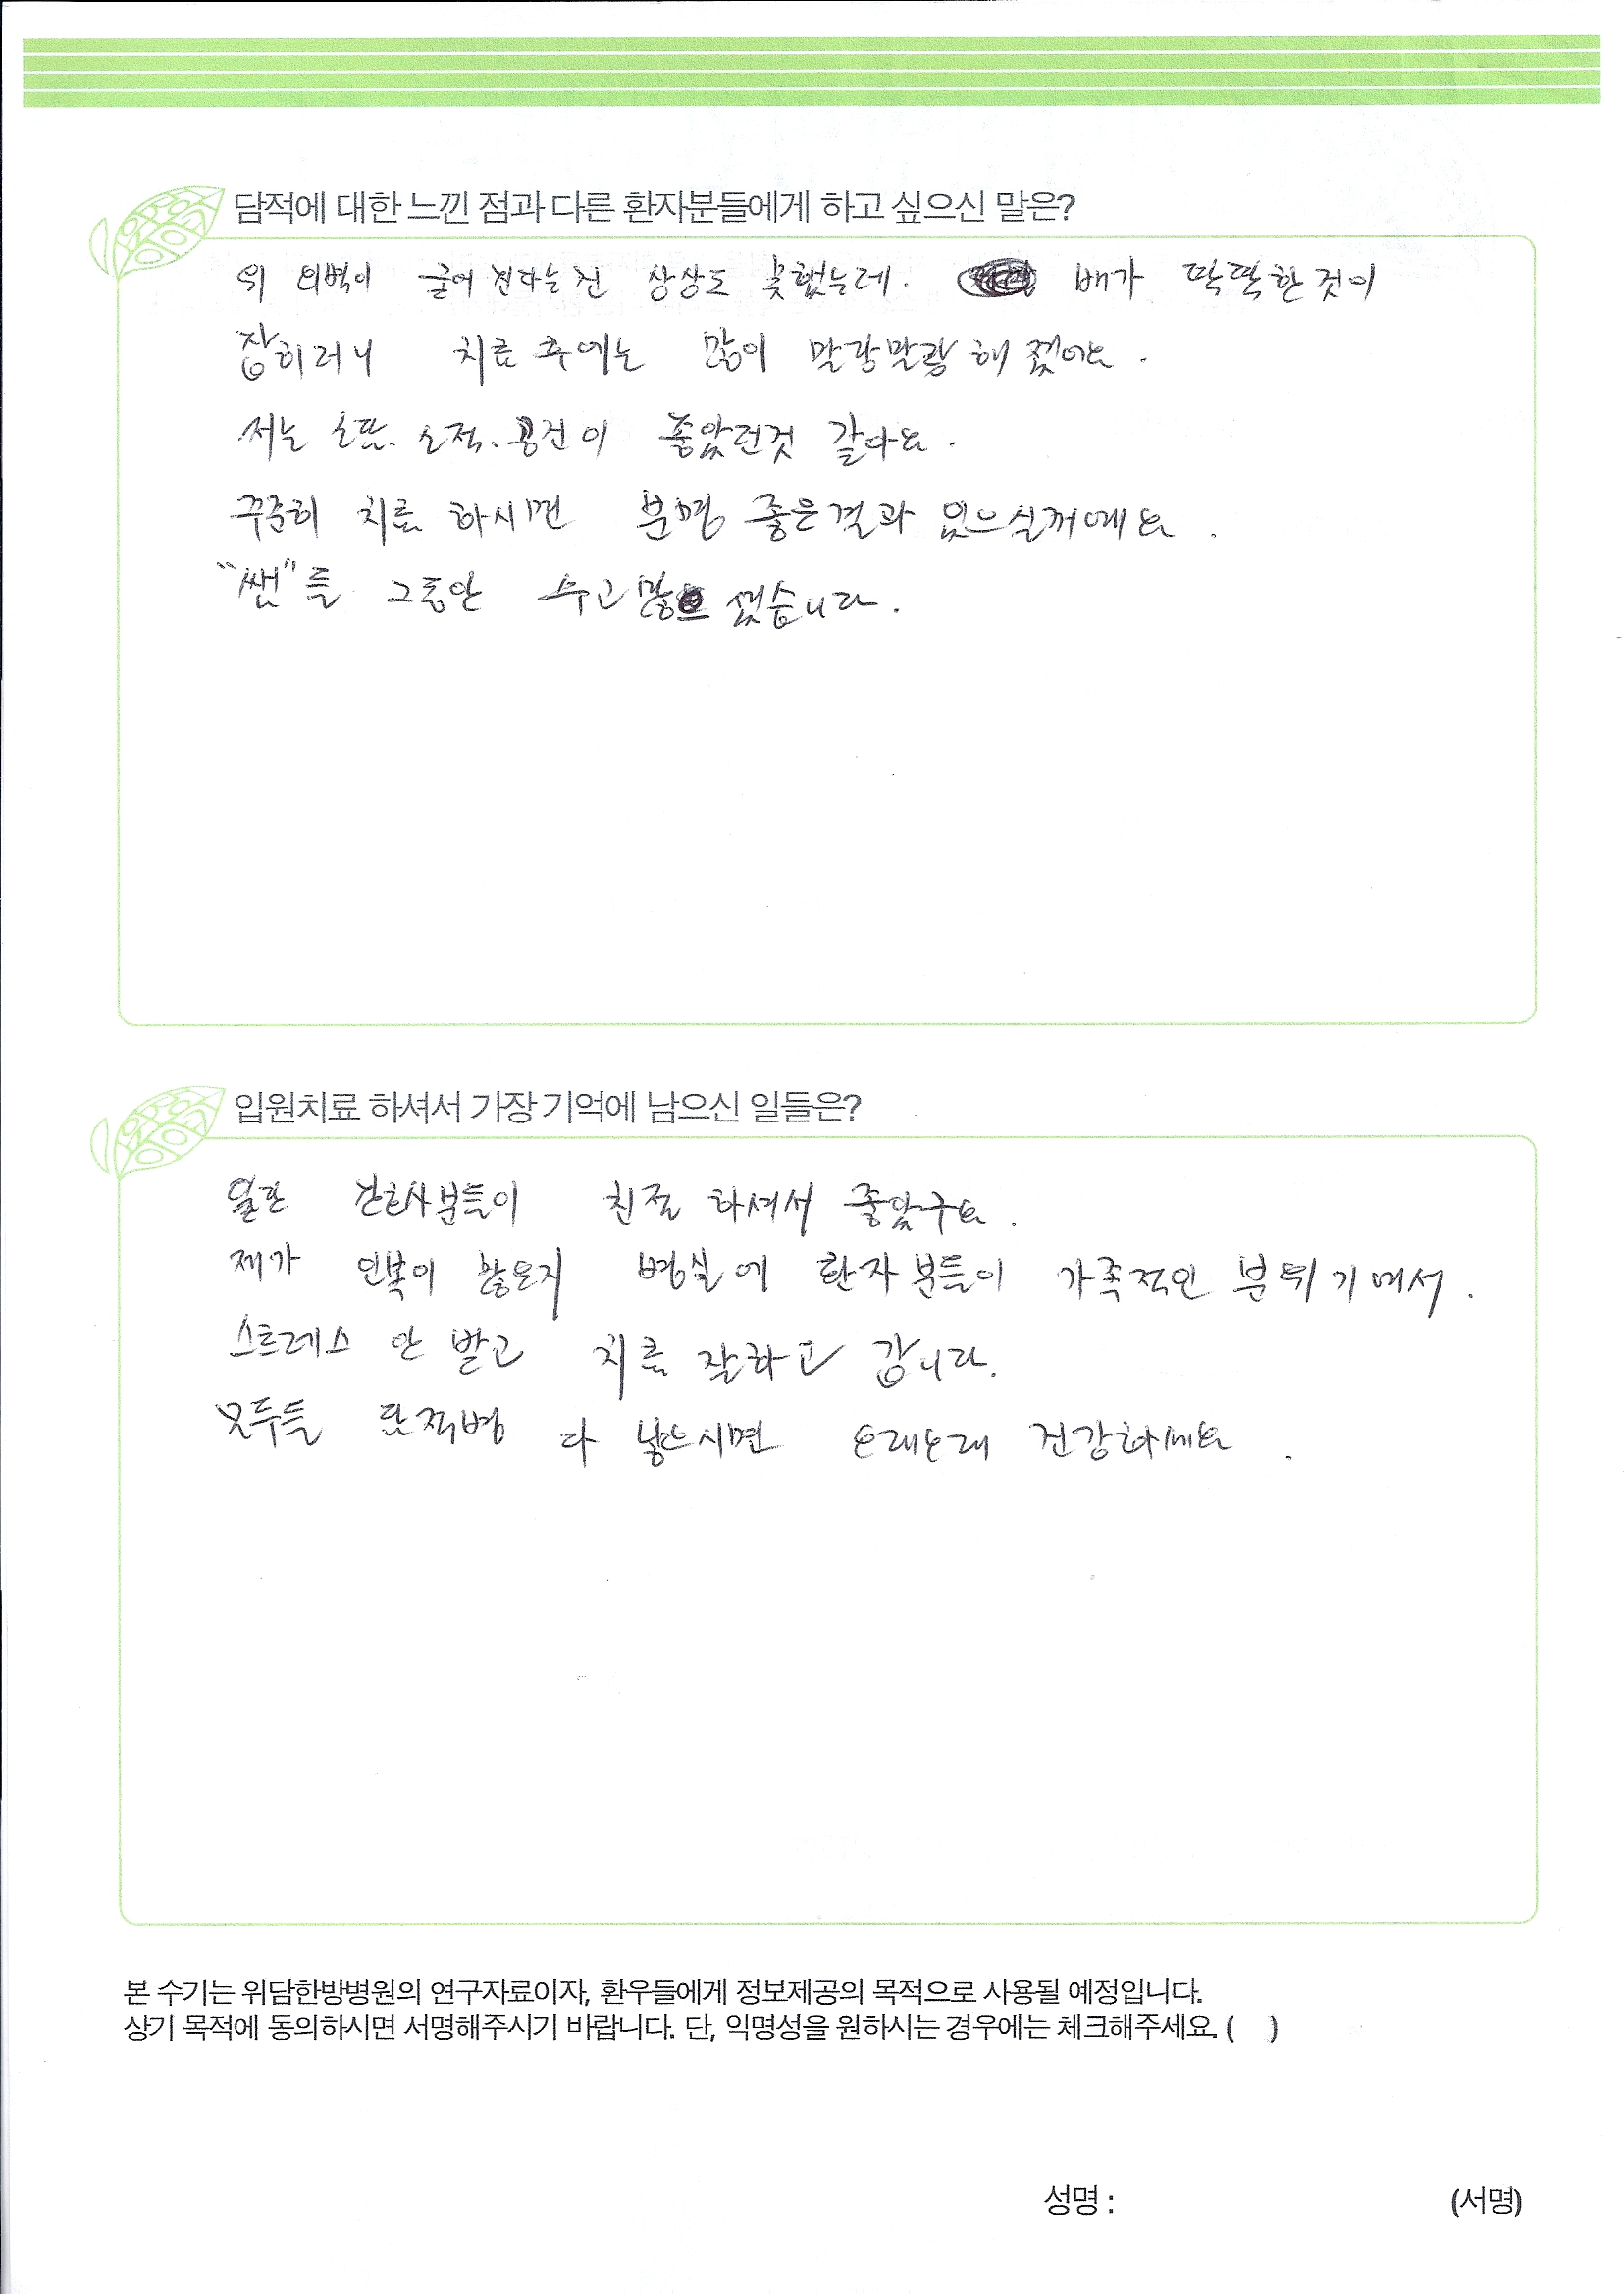 담적에 대한 느낀 점과 다른 환자분들에게 하고 싶으신 말은?
위 외벽이 굳어 진다는건 상상도 못했는데. 배가 딱딱한것이
잡히더니 치료후에는 많이 말랑말랑 해 졌어요.
저는 소적.공진이 좋았던것 같아요.
꾸준히 치료 하시면 분명 좋은결과 있으실꺼에요.
"쌤"들 그동안 수고많으셨습니다.
입원치료 하셔서 가장 기억에 남으신 일들은?
일단 간호사분들이 친절 하셔서 좋았구요.
제가 인복이 많은지 병실에 환자분들이 가족적인 분위기에서.
스트레스 안 받고 치료 잘하고 갑니다.
모두들 담적병 다 낳으시면 오래오래 건강하세요.
본 수기는 위담한방병원의 연구자료이자, 환우들에게 정보제공의 목적으로 사용될 예정입니다.
상기 목적에 동의하시면 서명해주시기 바랍니다. 단, 익명성을 원하시는 경우에는 체크해주세요. ( )
성명 : (서명)